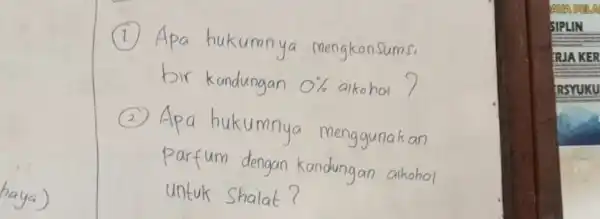 ① Apa hukumnya mengkonsumsi
bir kandungan 0% alkohol ?
② Apa hukumnya menggunakan
parfum dengan kandungan alkohol
untuk Shalat ?
haya)
SIPLIN
RJA KER
RSYUKU